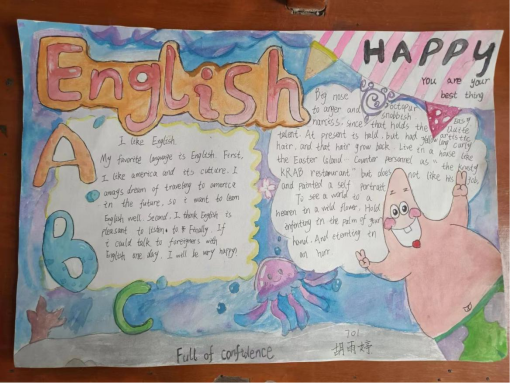 English
HAPPY
You are your
best thing
A
B
C
I like English
My favorite language is English First,
I like america and its culture. I
always dream of traveling to america
in the future, so I want to learn
English well. Second, I think English is
pleasant to listen to & Finally. If
I could talk to foreigners with
English one day, I will be very happy.
Big nose
octopus
to anger and snobbish
narcissi, since that holds the
talent. At present is bald, but had
hair, and that hair grow back. Live in a house like
the Easter Island - Counter personel as "the krusty
KRAB restaurant" but does not like his job
and painted a self portrait
To see a world in a
heaven in a wild flower. Hold
infinity in the palm of your
hand. And eternity in
an hour.
Full of confidence
701
胡雨婷